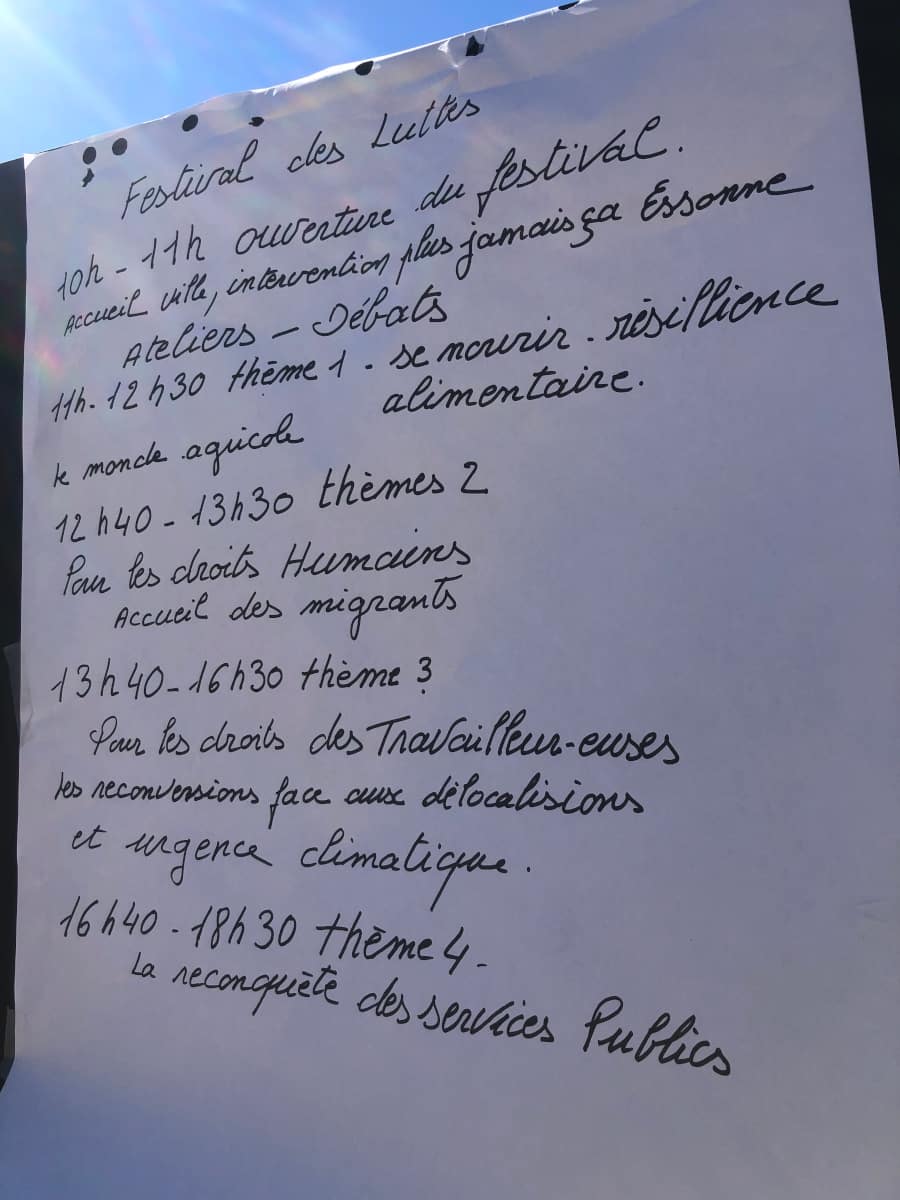 Festival des Luttes
10h - 11h ouverture du festival.
Accueil ville, intervention plus jamais ça Essonne
Ateliers - Débats
11h - 12h30 thème 1 - se nourir - résillience
alimentaire.
le monde agricole
12h40 - 13h30 thèmes 2
Pour les droits Humains
Accueil des migrants
13h40 - 16h30 thème 3
Pour les droits des Travailleur-euses
les reconversions face aux délocalisions
et urgence climatique.
16h40 - 18h30 thème 4 -
La reconquète des services Publics